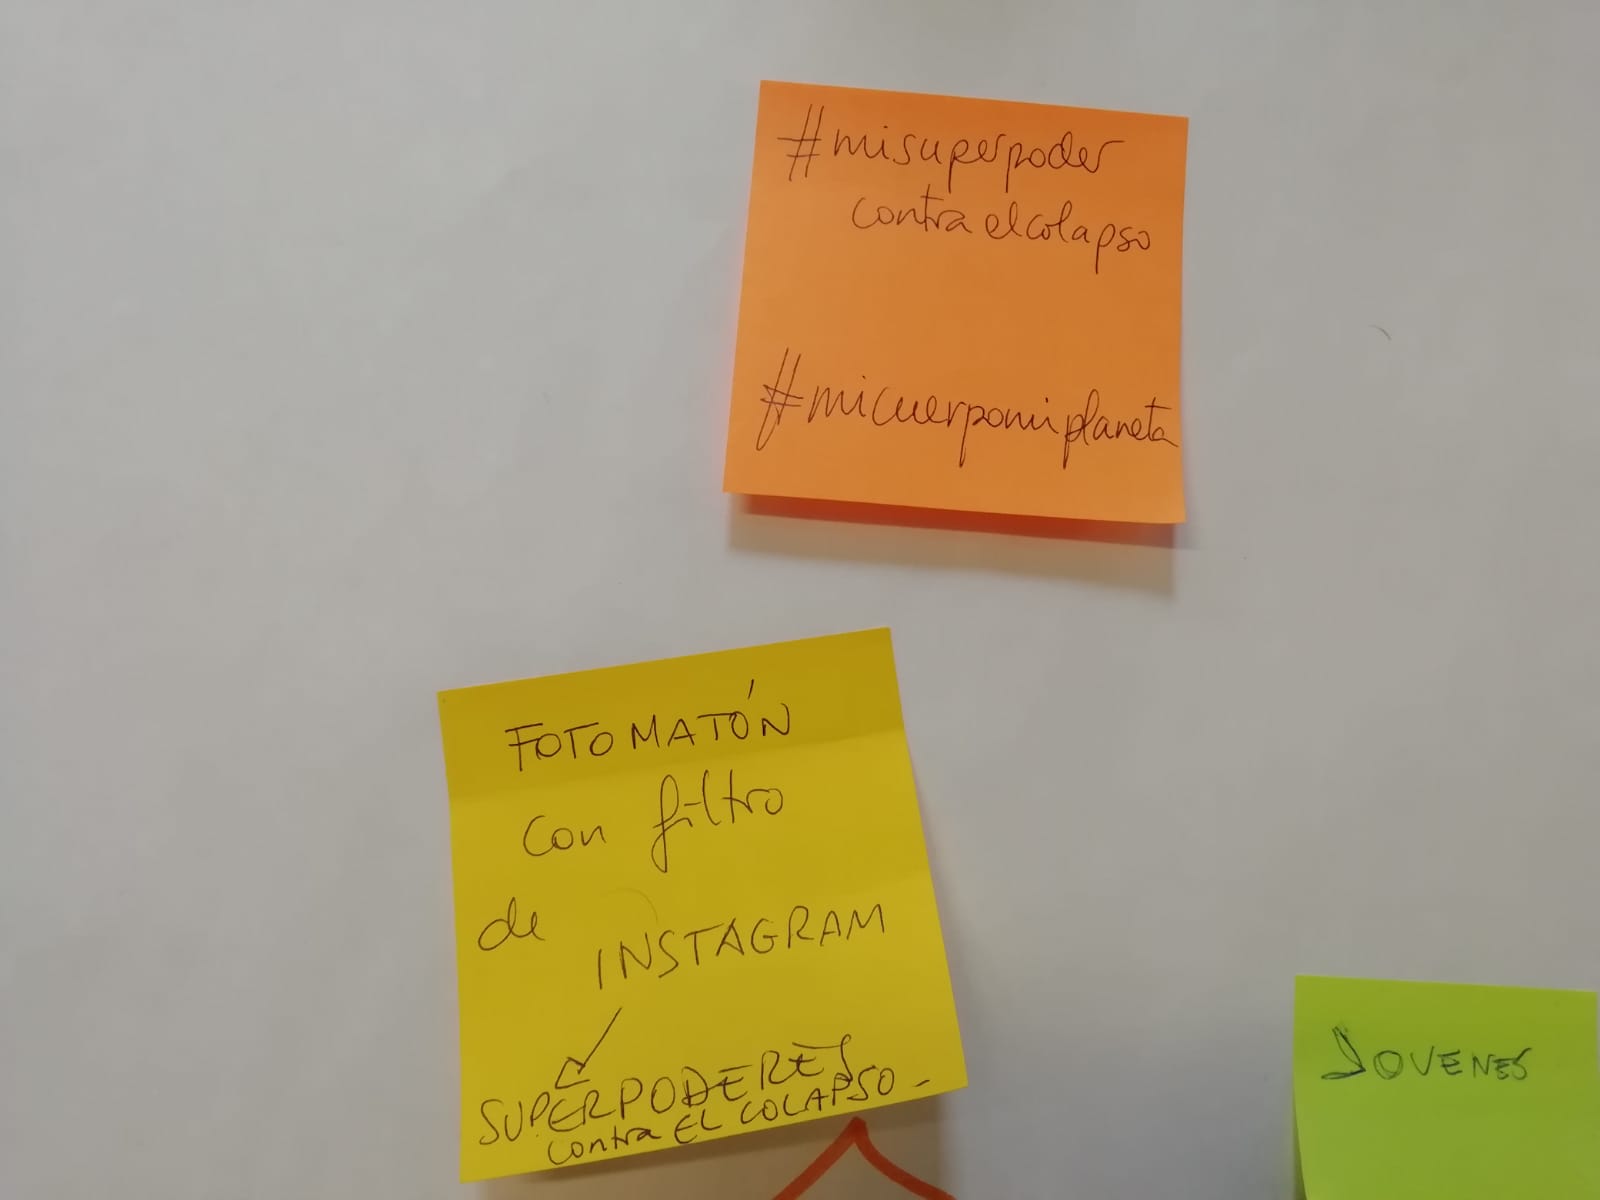 #misuperpoder
contraelcolapso
#micuerpomiplaneta
FOTOMATÓN
con filtro
de INSTAGRAM
SUPERPODERES
contra EL COLAPSO-
JOVENES